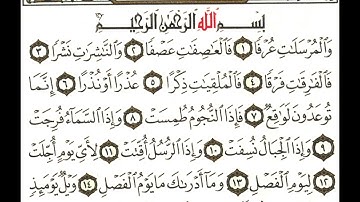 بِسْمِ اللَّهِ الرَّحْمَٰنِ الرَّحِيمِ
وَالْمُرْسَلَاتِ عُرْفًا ١ فَالْعَاصِفَاتِ عَصْفًا ٢ وَالنَّاشِرَاتِ نَشْرًا ٣
فَالْفَارِقَاتِ فَرْقًا ٤ فَالْمُلْقِيَاتِ ذِكْرًا ٥ عُذْرًا أَوْ نُذْرًا ٦ إِنَّمَا
تُوعَدُونَ لَوَاقِعٌ ٧ فَإِذَا النُّجُومُ طُمِسَتْ ٨ وَإِذَا السَّمَاءُ فُرِجَتْ
٩ وَإِذَا الْجِبَالُ نُسِفَتْ ١٠ وَإِذَا الرُّسُلُ أُقِّتَتْ ١١ لِأَيِّ يَوْمٍ أُجِّلَتْ
١٢ لِيَوْمِ الْفَصْلِ ١٣ وَمَا أَدْرَاكَ مَا يَوْمُ الْفَصْلِ ١٤ وَيْلٌ يَوْمَئِذٍ